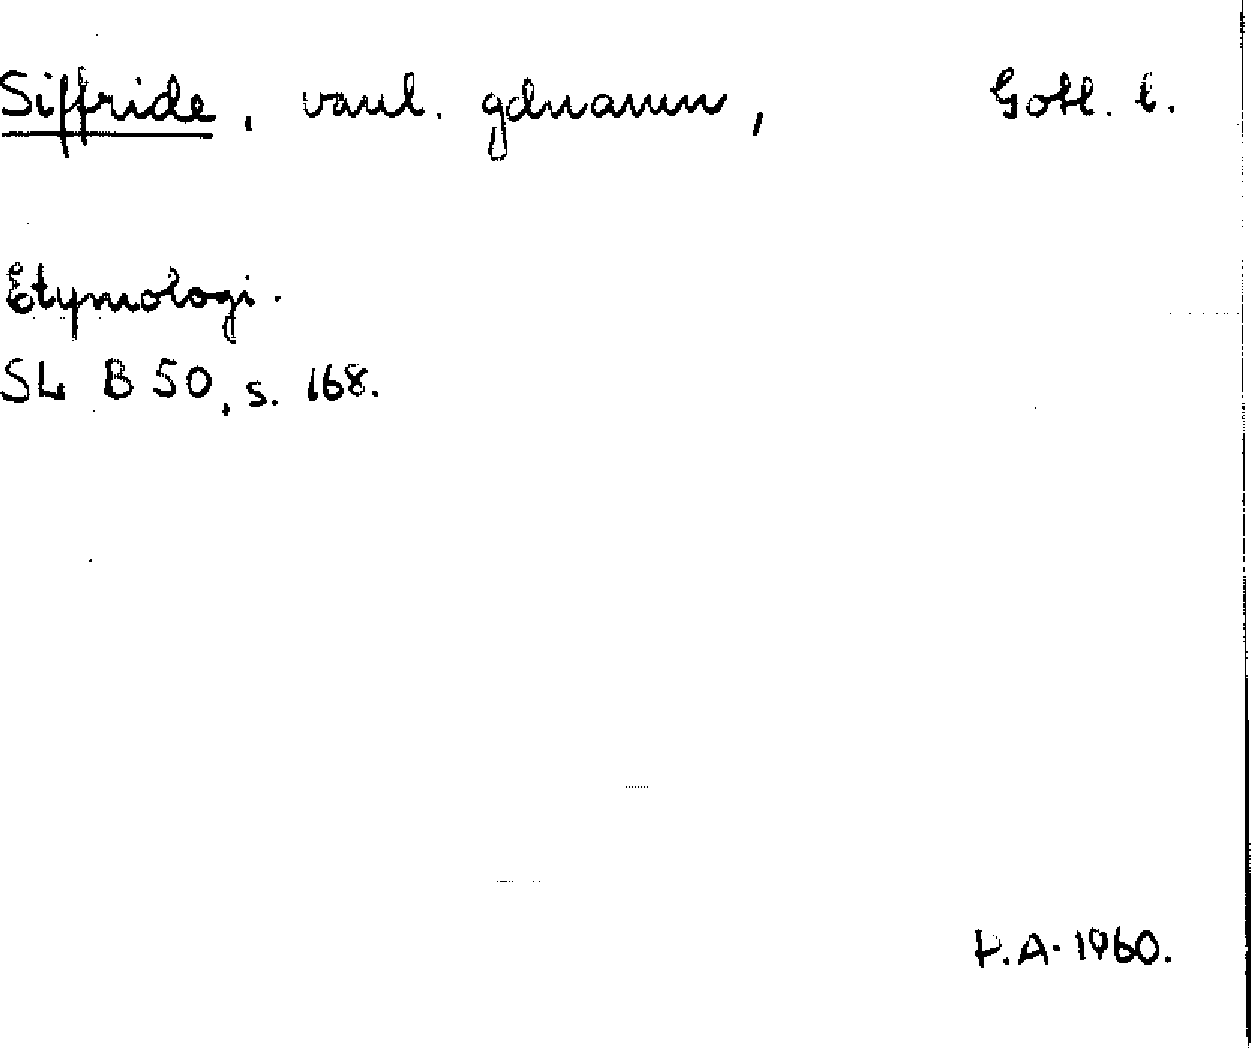 Siffride, vanl. gdnamn, Gotl. l.
Etymologi.
SL B 50, s. 168.
P.A. 1960.